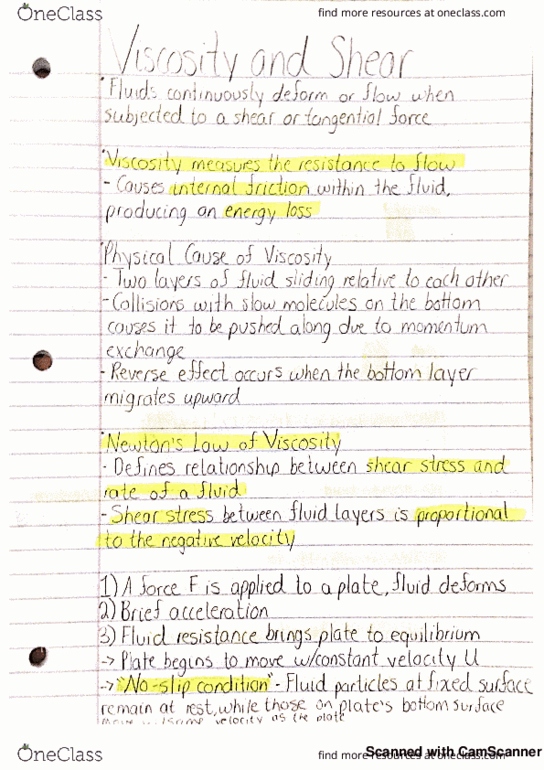 OneClass
find more resources at oneclass.com
Viscosity and Shear
Fluids continuously deform or flow when
subjected to a shear or tangential force
Viscosity measures the resistance to flow
- Causes internal friction within the fluid,
producing an energy loss
Physical Cause of Viscosity
- Two layers of fluid sliding relative to each other
- Collisions with slow molecules on the bottom
causes it to be pushed along due to momentum
exchange
- Reverse effect occurs when the bottom layer
migrates upward
Newton's Law of Viscosity
- Defines relationship between shear stress and
rate of a fluid
- Shear stress between fluid layers is proportional
to the negative velocity
1) A force F is applied to a plate, fluid deforms
2) Brief acceleration
3) Fluid resistance brings plate to equilibrium
-> Plate begins to move w/constant velocity U
-> "No-slip condition" - Fluid particles at fixed surface
remain at rest, while those on plate's bottom surface
move w/same velocity as the plate
OneClass
find more resources at oneclass.com
Scanned with CamScanner